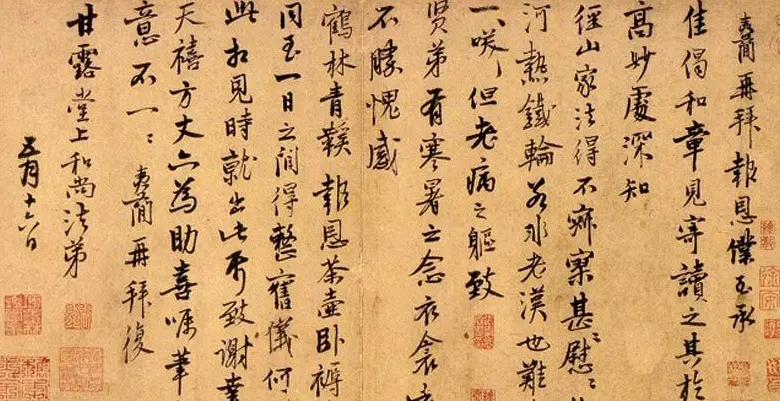 夷簡再拜報恩僕至承
佳偈和章見寄讀之其於
高妙處深知
徑山家法得不寂寥甚〻慰〻
河熱鐵輪老漢也難
一咲但老病之軀致
賢弟有寒暑之念衣衾
不勝愧感
鶴林青鞵報恩茶壺卧褥
同至一日之間得整舊儀何
此相見時就出此帋致謝幸
天禧方丈亦為助喜囑筆
意不一〻夷簡再拜復
甘露堂上和尚法弟
五月十六日